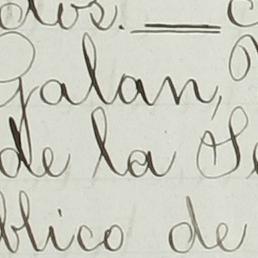 dos. ___ 
Galan,
de la Se
blico de